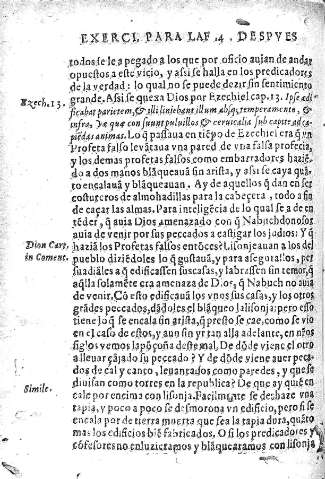 EXERCI. PARA LAF .4. DESPVES
todos se le a pegado a los que por oficio auian de andar
opuestos a este vicio, y assi se halla en los predicadores
de la verdad: lo qual no se puede dezir sin sentimiento
Ezech. 13.
grande. Assi se quexa Dios por Ezechiel cap. 13. Ipse ædi
ficabat parietem, & illi liniebant illum absq; temperamento, &
infra, Væ quæ consuunt puluillos & ceruicalia sub capite ad ca-
piẽdas animas. Lo q̃ passaua en tiẽpo de Ezechiel era q̃ vn
Profeta falso leuãtaua vna pared de vna falsa profecia,
y los demas profetas falsos como embarradores haziẽ-
do a dos manos blãqueauã sin arista, y assi se caya quã-
to encalauã y blãqueauan. Ay de aquellos q̃ dan en ser
costureros de almohadillas para la cabeçera, todo a fin
de caçar las almas. Para inteligẽcia de lo qual se a de en
tẽder, q̃ auia Dios amenazado con q̃ Nabuchdonosor
auia de venir por sus peccados a castigar los judios: Y q̃
Dion Cart.
in Coment.
haziã los Profetas falsos entõces? Lisonjeauan a los del
pueblo diziẽdoles lo q̃ gustauã, y para assegurallos, per
suadiãles a q̃ edificassen sus casas, y labrassen sin temor, q̃
aq̃lla solamẽre era amenaza de Dios, q̃ Nabuch no auia
de venir. Cõ esto edificauã los vnos sus casas, y los otros
grãdes peccados, dãdoles el blãqueo la lisonja: pero esso
tiene lo q̃ se encala sin arista, q̃ presto se cae, como se vio
en el caso de estos, y aun sin yr tan alla adelante, en nřos
siglos vemos la põçoña deste mal. De dõde viene el otro
a lleuar ãjado su peccado? Y de dõde viene auer peca-
dos de cal y canto, leuantados como paredes, y que se
Simile.
diuisan como torres en la republica? De que ay quiẽ en
cale por encima con lisonja. Facilmente se deshaze vna
tapia, y poco a poco se desmorona vn edificio, pero si se
encala por defuera mientras que sea la tapia dura, quãto
mas los edificios biẽ fabricados. O si los predicadores y
cõfesores no enluziramos y blãquearamos con lisonja